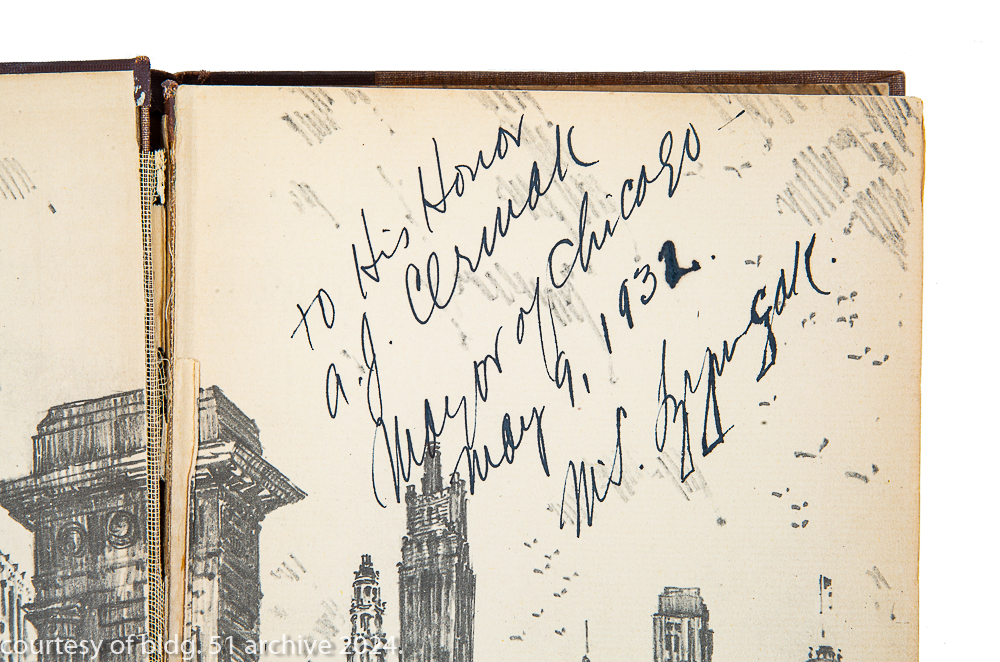 to His Honor
A. J. Cermak
Mayor of Chicago -
May 9, 1932.
M. S. Szymczak.
courtesy of bldg. 51 archive 2024.